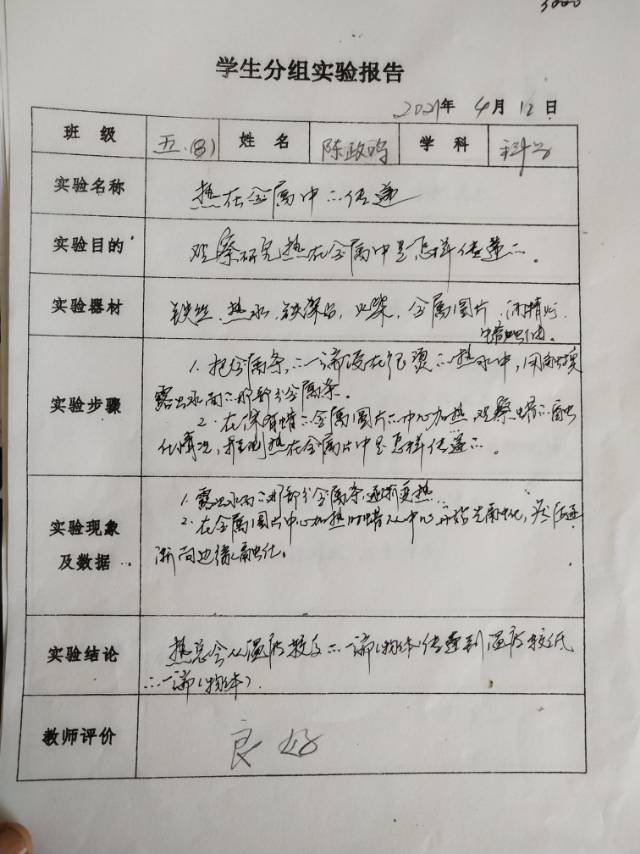 学生分组实验报告
2021年 4月 12日
班级 五.(3) 姓名 陈政鸣 学科 科学
实验名称 热在金属中的传递
实验目的 观察研究热在金属中是怎样传递的。
实验器材 铁丝、热水、铁架台、火柴、金属圆片、酒精灯
实验步骤 1. 把金属条的一端浸在很烫的热水中,用手触摸
露出水面的那部分金属条。
2. 在涂有蜡的金属圆片的中心加热,观察蜡的融
化情况,热在金属片中是怎样传递的。
实验现象及数据 1. 露出水面的那部分金属条逐渐变热
2. 在金属圆片中心加热时蜡从中心开始先融化,然后逐
渐向边缘融化。
实验结论 热总会从温度较高的一端(物体)传递到温度较低
的一端(物体).
教师评价 良好